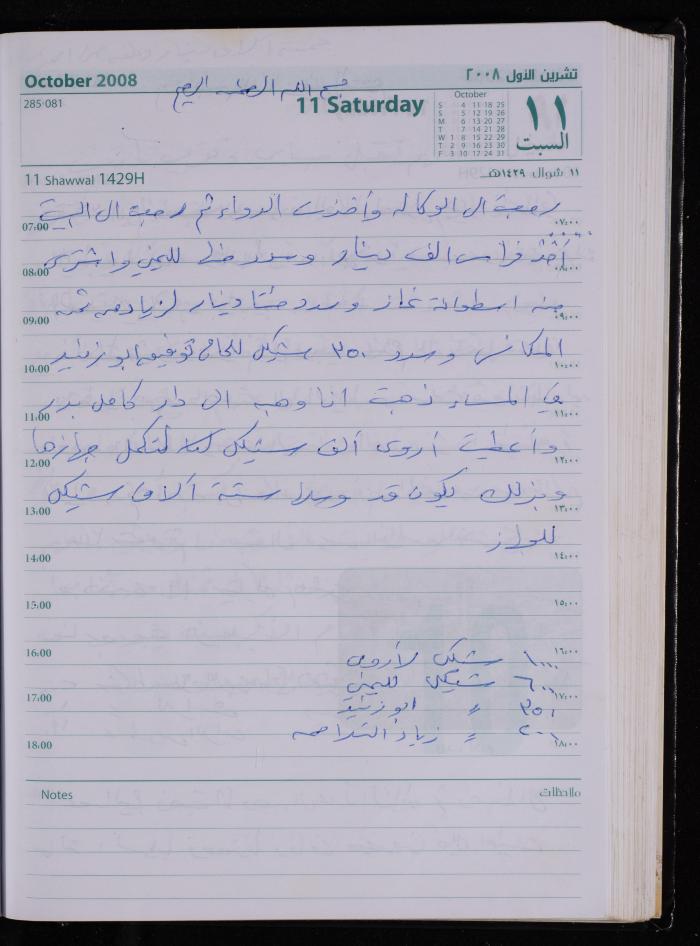 October 2008
تشرين الأول ٢٠٠٨
بسم الله الرحمن الرحيم
285-081
11 Saturday
October
S 4 11 18 25
S 5 12 19 26
M 6 13 20 27
T 7 14 21 28
W 1 8 15 22 29
T 2 9 16 23 30
F 3 10 17 24 31
١١
السبت
11 Shawwal 1429H
١١ شوال ١٤٢٩هـ
ال الوكالة وأخذت الدواء ثم رجعت ال البيت
07:00 ٠٧:٠٠
أخذ فراس الف دينار وسدد لليمني واشترى
08:00 ٠٨:٠٠
منه اسطوانة غاز وسدد مئتا دينار لزيادة
09:00 ٠٩:٠٠
وسدد ٣٥٠ شيكل للحاج توفيق ابو زنيد
10:00 ١٠:٠٠
في المساء ذهبت انا وهبه ال دار كامل بدر
11:00 ١١:٠٠
وأعطيت أروى ألف شيكل لتكمل جهازها
12:00 ١٢:٠٠
وبذلك يكون قد وصلها ستة آلاف شيكل
13:00 ١٣:٠٠
14:00 ١٤:٠٠
15:00 ١٥:٠٠
16:00 ١٦:٠٠
١٠٠٠ شيكل لأروى
٦٠٠ شيكل لليمني
17:00 ١٧:٠٠
٣٥٠ = ابو زنيد
٢٠٠ = زياد
18:00 ١٨:٠٠
Notes
ملاحظات